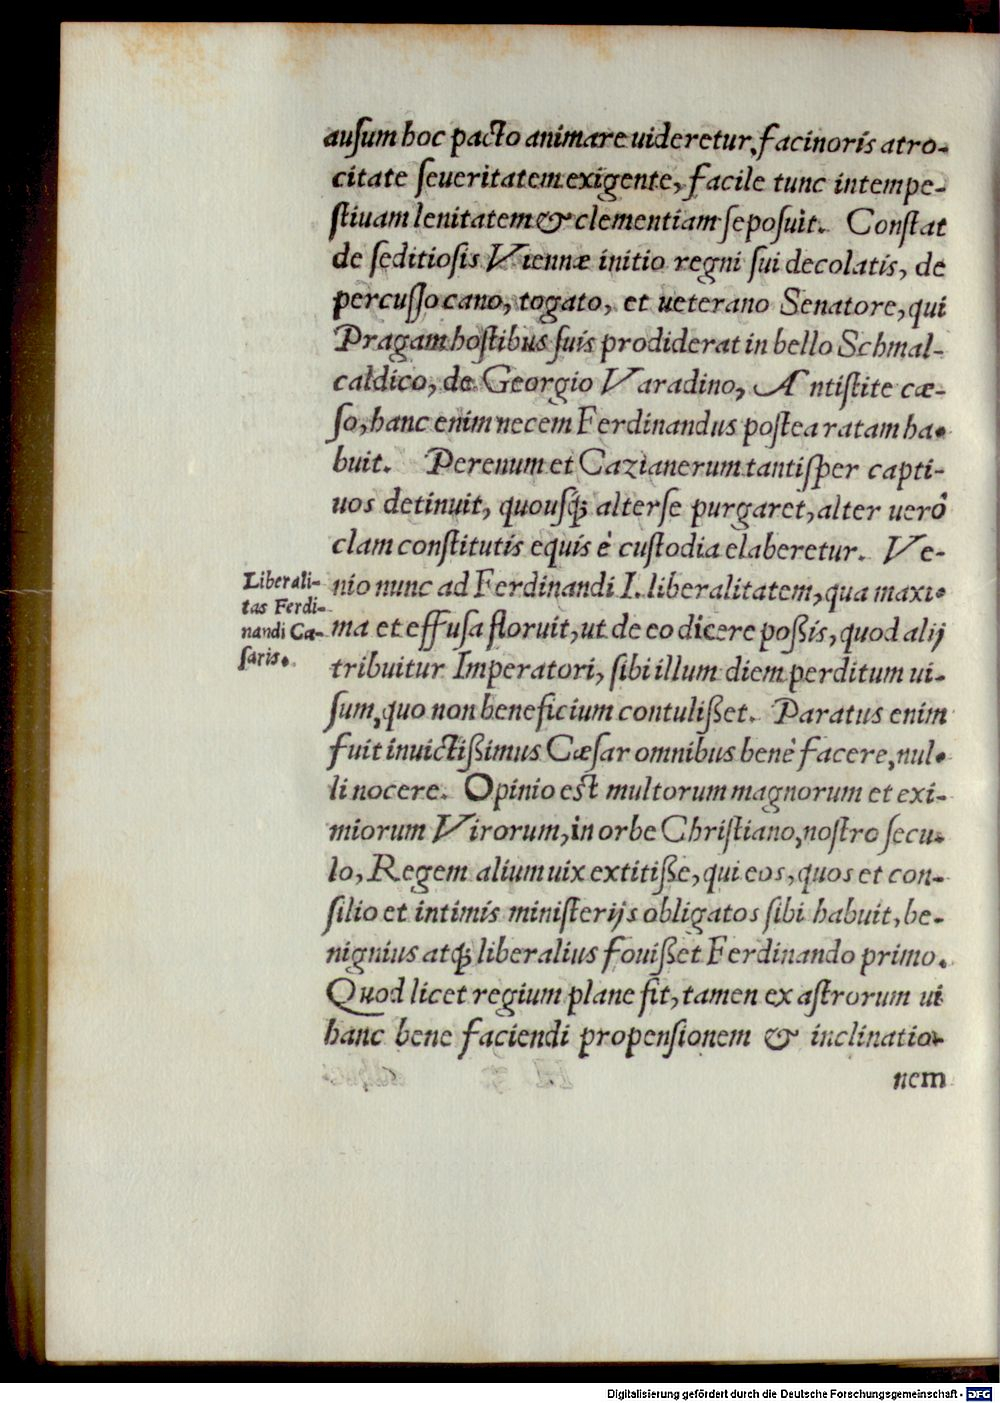 ausum hoc pacto animare uideretur, facinoris atro-
citate seueritatem exigente, facile tunc intempe-
stiuam lenitatem & clementiam seposuit. Constat
de seditiosis Viennæ initio regni sui decolatis, de
percusso cano, togato, et ueterano Senatore, qui
Pragam hostibus suis prodiderat in bello Schmal-
caldico, de Georgio Varadino, Antistite cæ-
so, hanc enim necem Ferdinandus postea ratam ha-
buit. Perenum et Cazianerum tantisper capti-
uos detinuit, quousq; alter se purgaret, alter uerò
clam constitutis equis è custodia elaberetur. Ve-
Liberali-
tas Ferdi-
nandi Cæ-
saris.
nio nunc ad Ferdinandi I. liberalitatem, qua maxi-
ma et effusa floruit, ut de eo dicere poßis, quod alij
tribuitur Imperatori, sibi illum diem perditum ui-
sum, quo non beneficium contulißet. Paratus enim
fuit inuictißimus Cæsar omnibus benè facere, nul-
li nocere. Opinio est multorum magnorum et exi-
miorum Virorum, in orbe Christiano, nostro secu-
lo, Regem alium uix extitiße, qui eos, quos et con-
silio et intimis ministerijs obligatos sibi habuit, be-
nignius atq; liberalius fouißet Ferdinando primo.
Quod licet regium plane sit, tamen ex astrorum ui
hanc bene faciendi propensionem & inclinatio-
nem
Digitalisierung gefördert durch die Deutsche Forschungsgemeinschaft - DFG